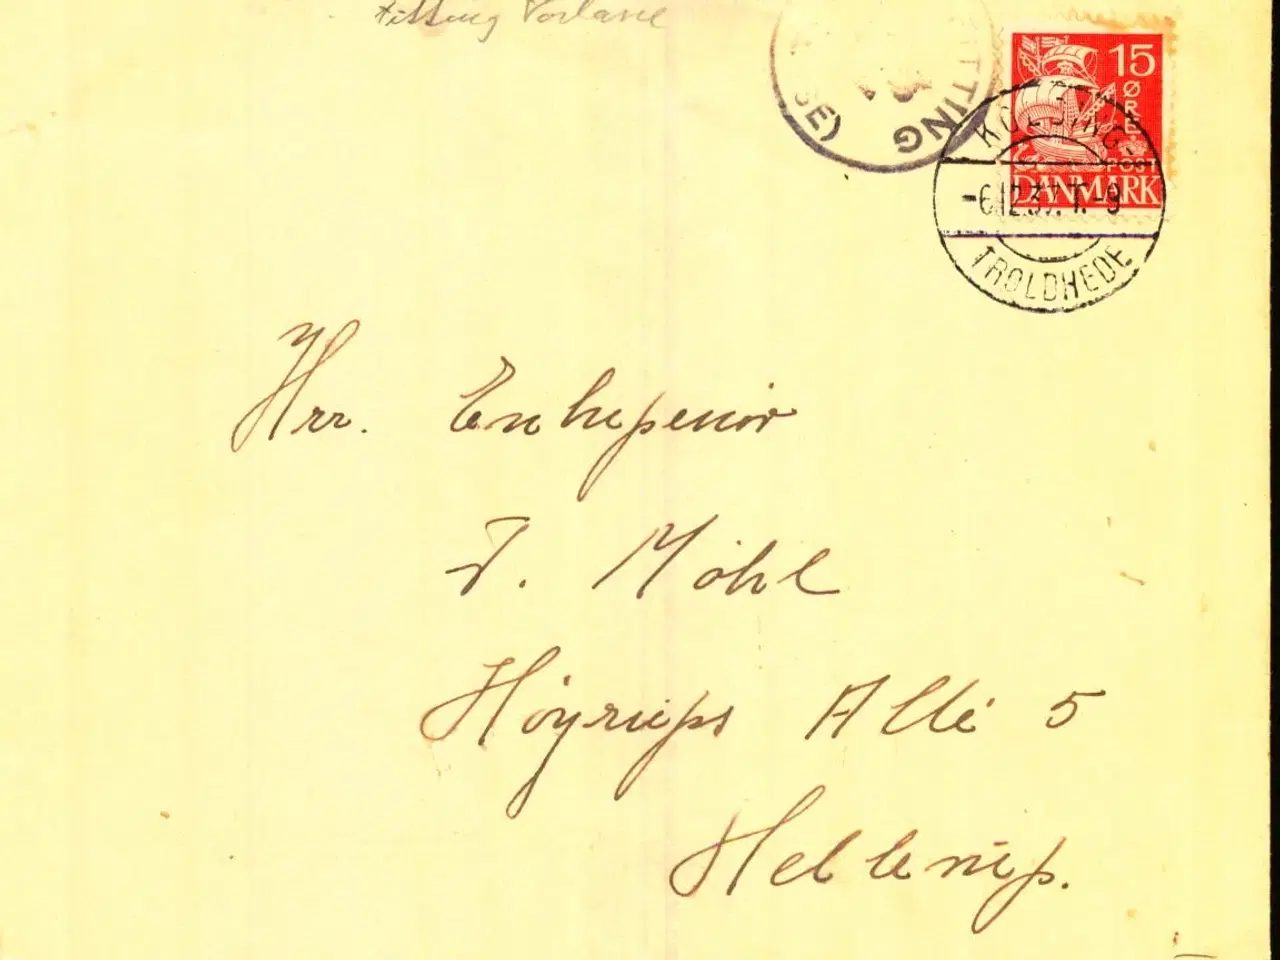 Fitting Vorbasse
FITTING
SE)
15
ØRE
POST
DANMARK
KOLDING-
-6.12.37.T.-9
TROLDHEDE
Hrr. Entreprenør
J. Møhl
Høyrups Allé 5
Hellerup.